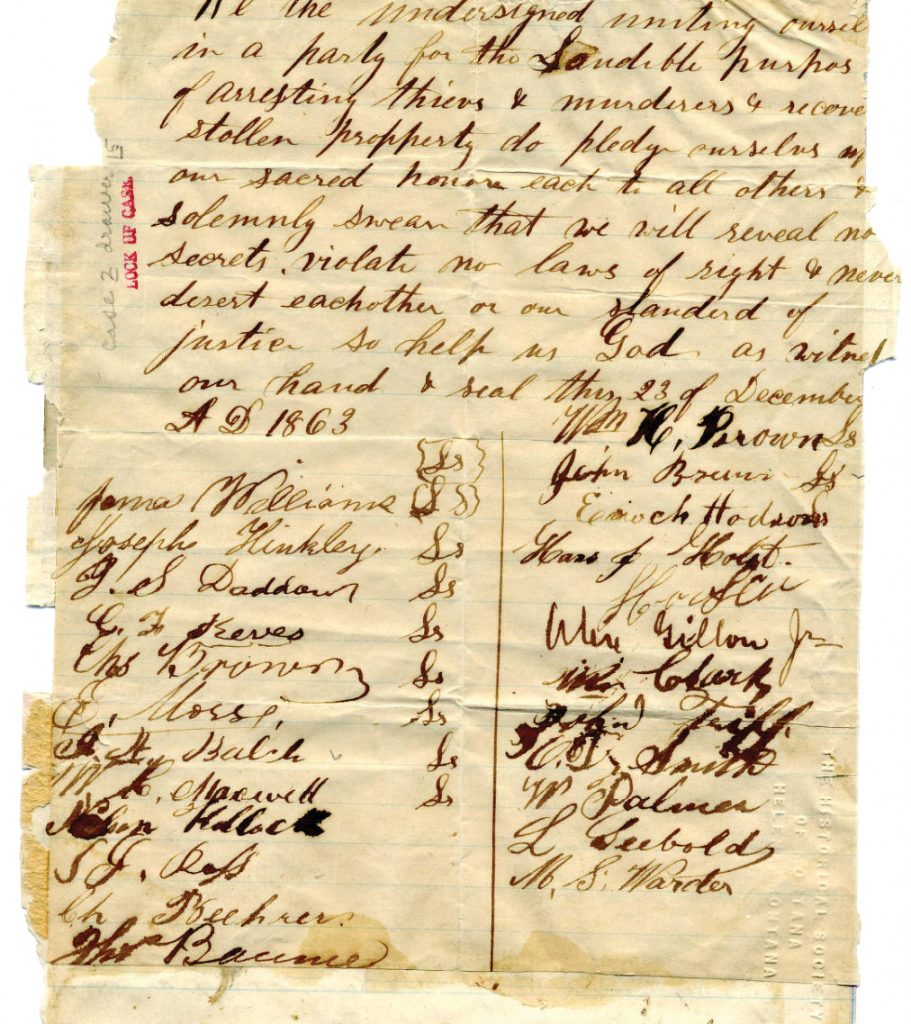 We the undersigned uniting oursel
in a party for the Laudible purpos
of arresting thievs & murderers & recove
stollen propperty do pledge ourselvs
our sacred honor each to all others &
solemnly swear that we will reveal no
secrets, violate no laws of right & never
desert eachother or our standerd of
justice so help us God as witnes
our hand & seal this 23 of December
A D 1863
{Ls}
James Williams {LS}
Joseph Hinkley Ls
J. S Daddow Ls
C. F Keyes Ls
Chs Brown Ls
E. Morse, Ls
A. H. Balch Ls
W C. Maxwell Ls
Nelson Kellock
S J. Ross
Ch Beehrer.
Thos Baume
Wm H. Brown Ls
John Brown Ls
Enoch Hodson Ls
Hans J Holst.
Alex Gillon Jr
Wm Clark
John Triff.
Smith
W Palmer
L Seebold
M. S. Warder
case 3 drawer 15
LOCK UP CASE.
THE HISTORICAL SOCIETY
OF MONTANA
HELENA MONTANA